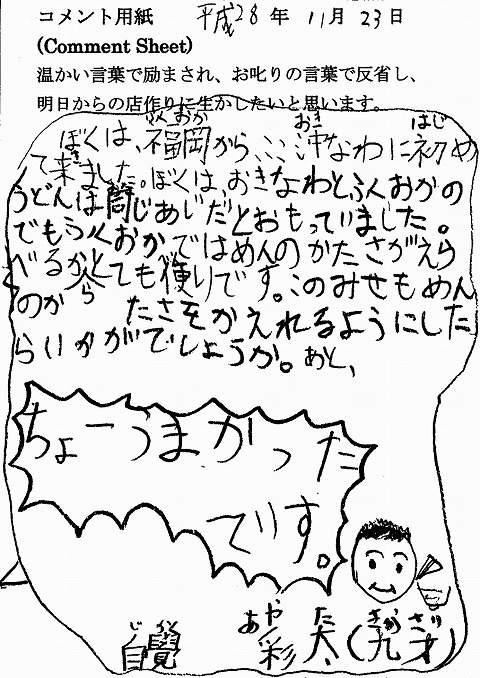 コメント用紙 平成28年 11月 23日
(Comment Sheet)
温かい言葉で励まされ、お叱りの言葉で反省し、
明日からの店作りに生かしたいと思います。
ぼくは、福岡から、ミミ沖なわに初め
て来ました。ぼくは、おきなわとふくおかの
うどんは同じあじだとおもっていました。
でもふくおかではめんのかたさがえら
べるからとても便りです。このみせもめん
のかたさをかえれるようにした
らいかがでしょうか。あと、
ちょーうまかった
です。
自覚 彩太(九才)